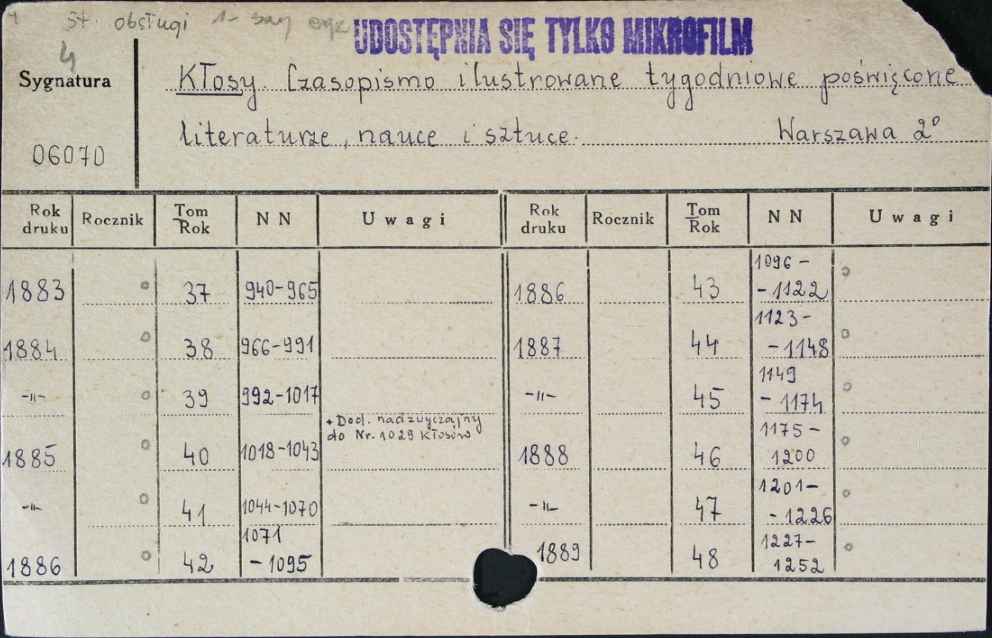 st. obsługi 1-
UDOSTĘPNIA SIĘ TYLKO MIKROFILM
4
Sygnatura
06070
Kłosy. Czasopismo ilustrowane tygodniowe poświęcone
literaturze, nauce i sztuce. Warszawa 2°
Rok druku Rocznik Tom Rok NN Uwagi Rok druku Rocznik Tom Rok NN Uwagi
1883 ° 37 940-965
1884 ° 38 966-991
-"- ° 39 992-1017
1885 ° 40 1018-1043 + Dod. nadzwyczajny
do Nr. 1029 Kłosów
-"- ° 41 1044-1070
1886 ° 42 1071
-1095
1886 43 1096-
-1122 °
1887 44 1123-
-1148 °
-"- 45 1149
-1174 °
1888 46 1175-
1200 °
-"- 47 1201-
-1226 °
1889 48 1227-
1252 °